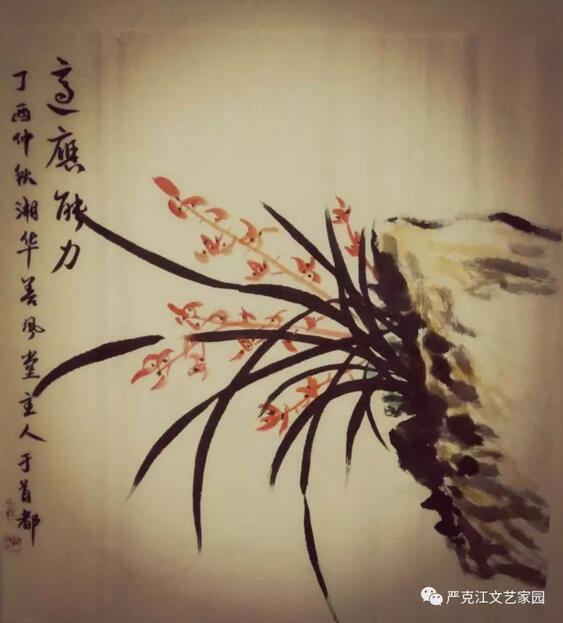 適應能力
丁酉仲秋湘华善风堂主人于首都
严克江文艺家园